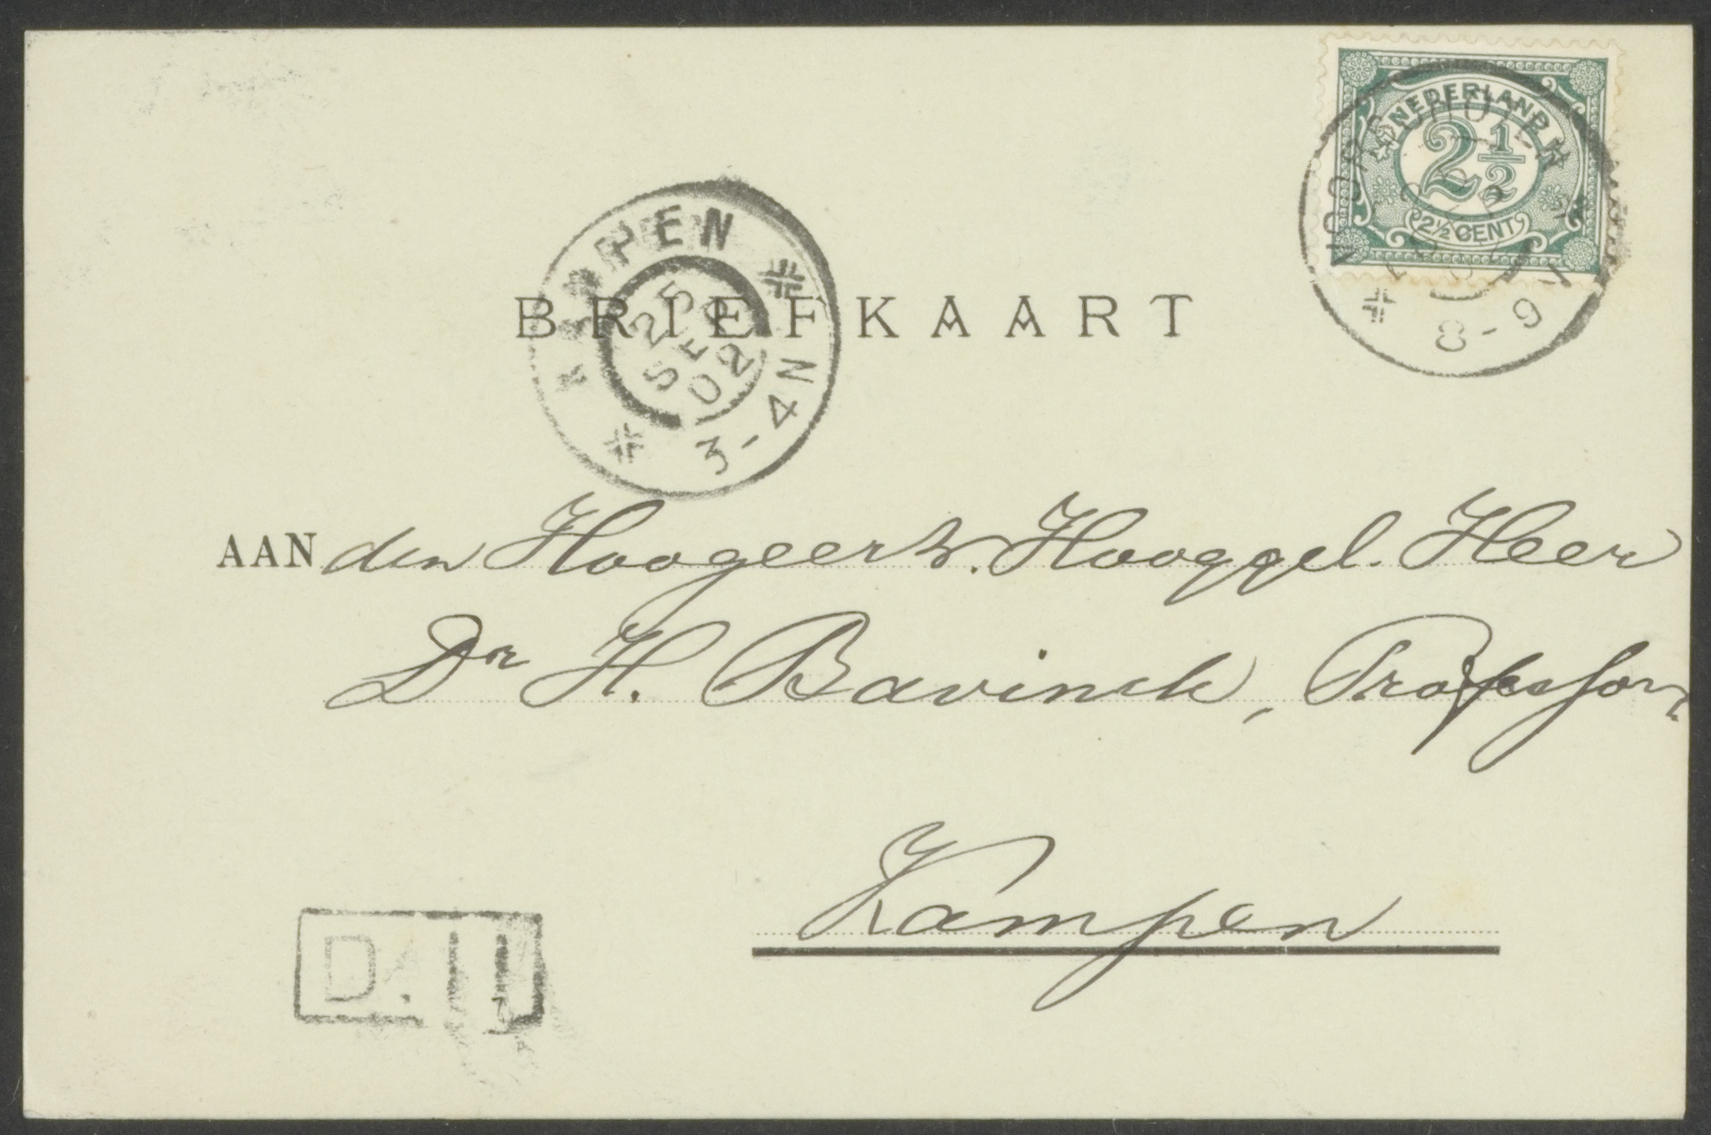 NEDERLAND
2½
2½ CENT
8-9V
KAMPEN
25
SEP
02
3-4N
BRIEFKAART
AAN den Hoogeerw. Hooggel. Heer
Dr H. Bavinck, Professor,
Kampen
D. II